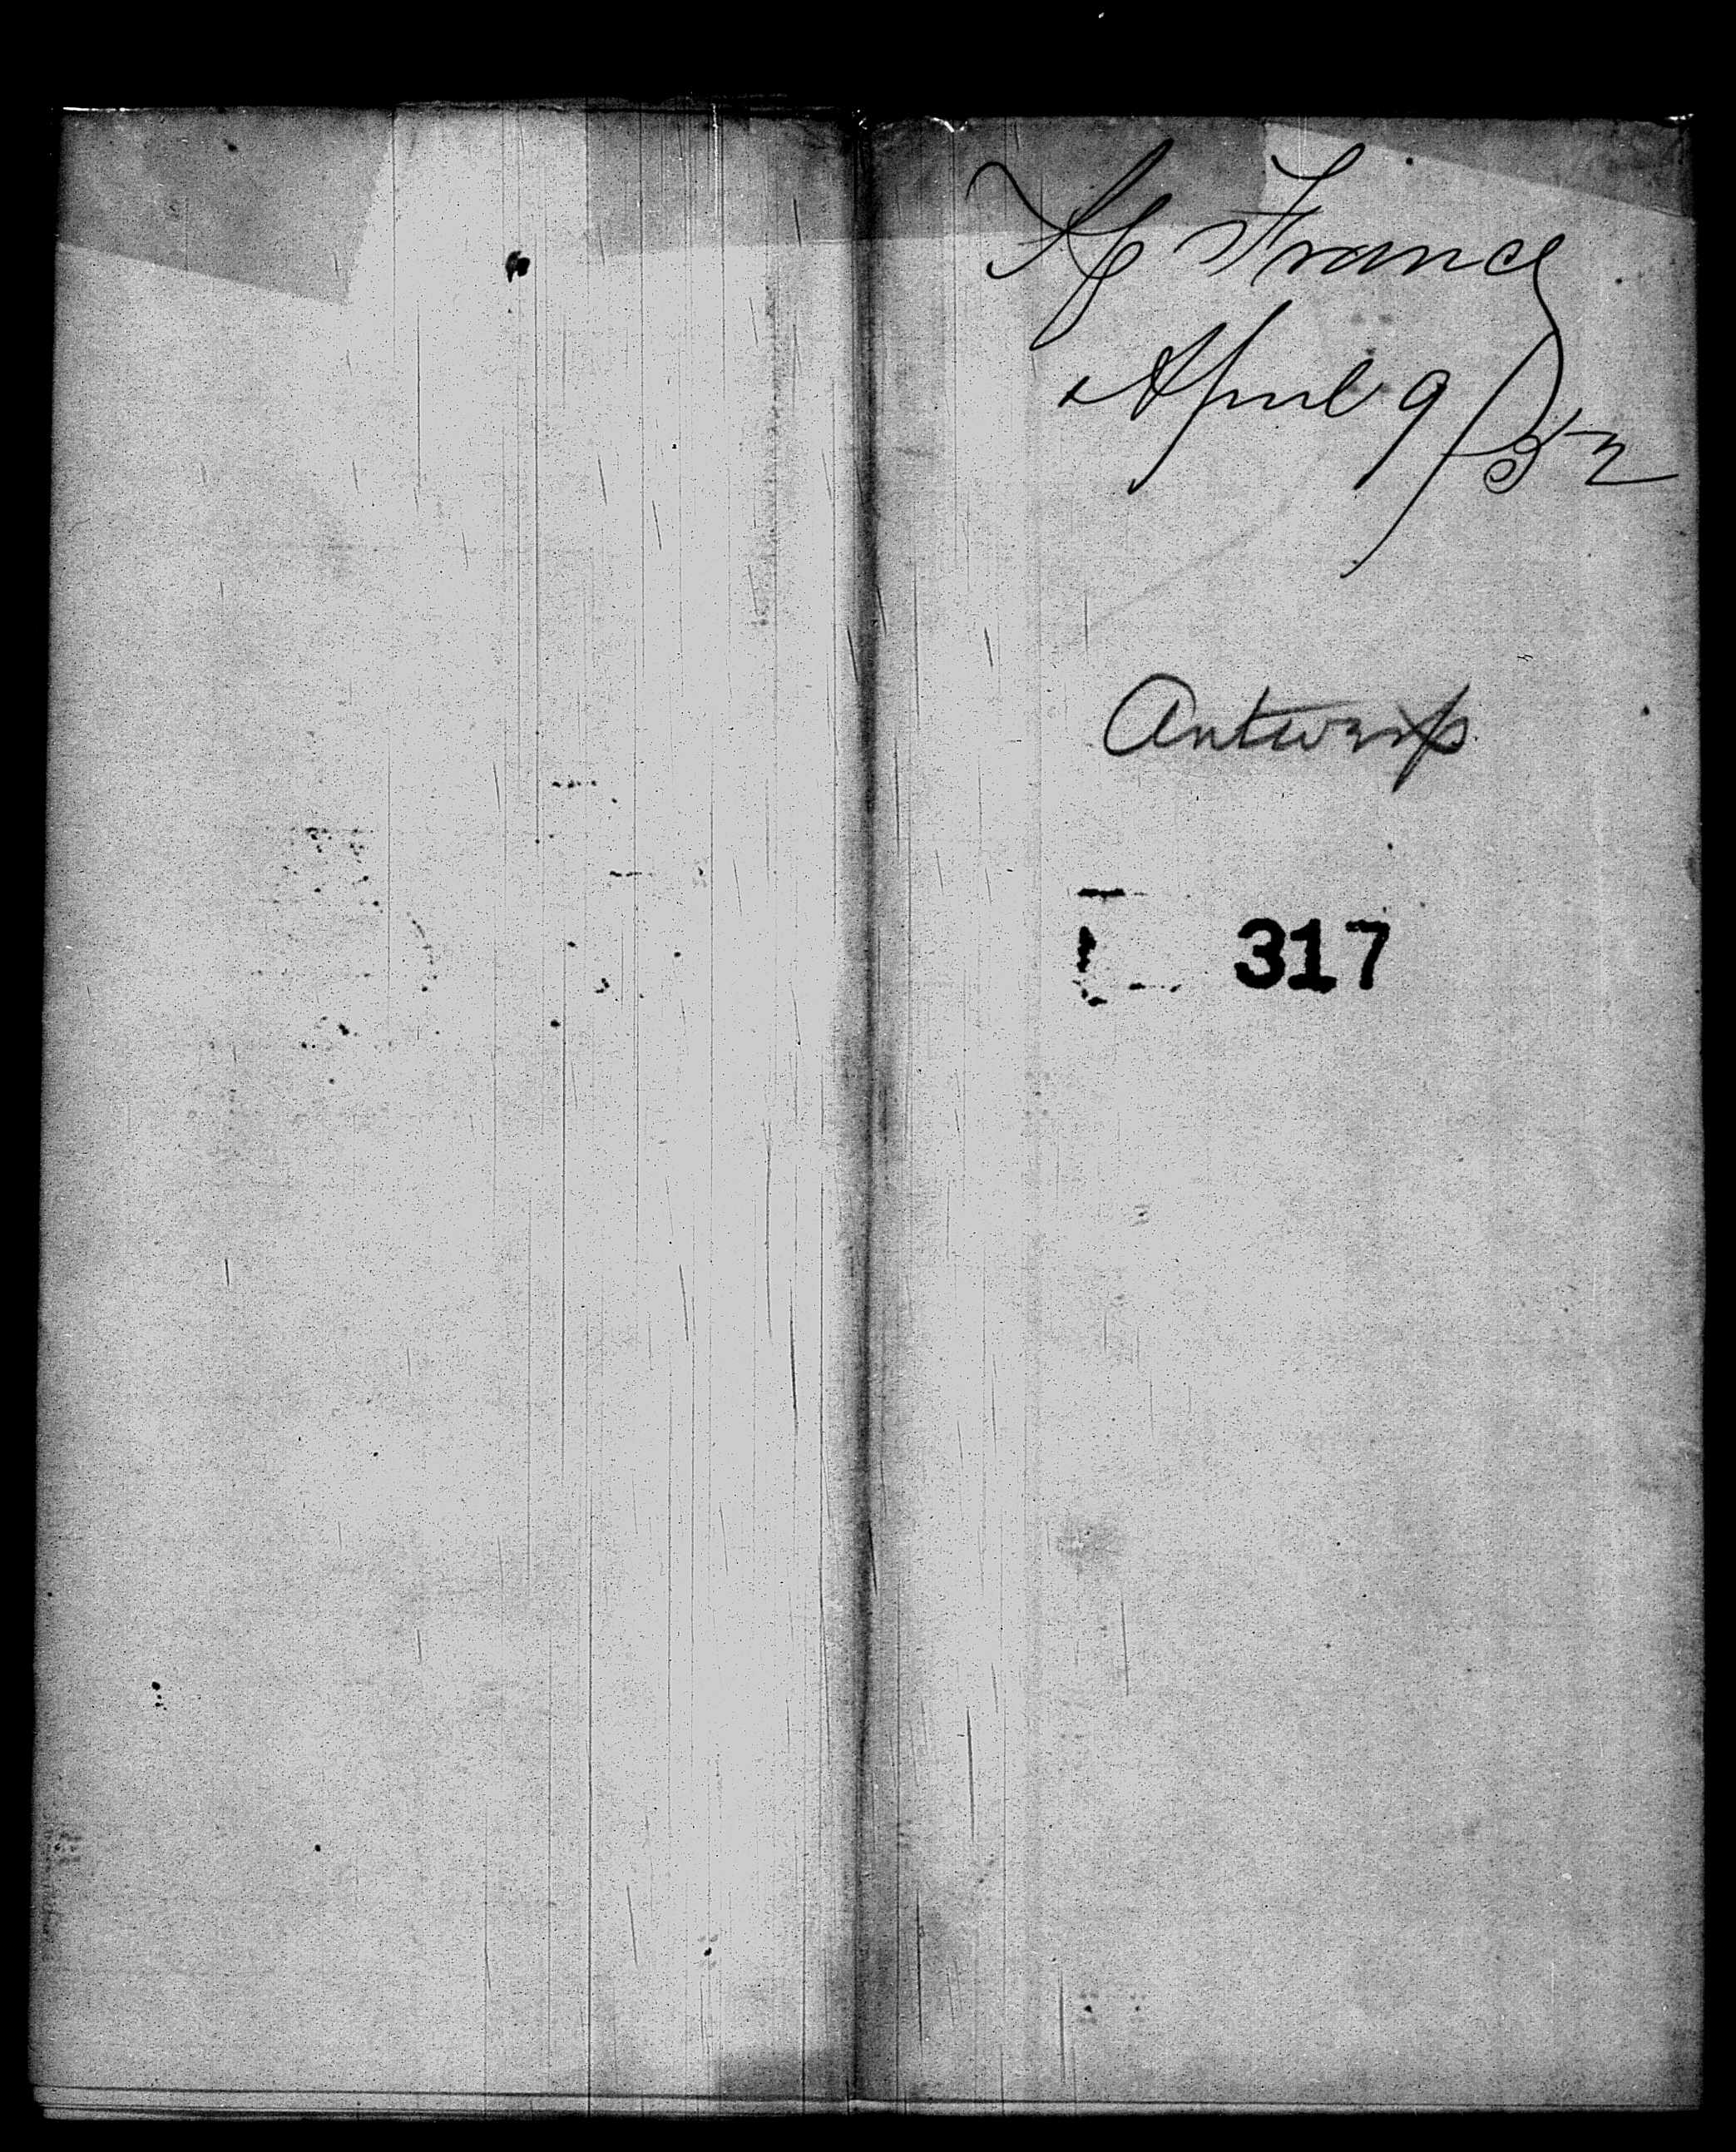 France
April 9/52
Antwerp
317